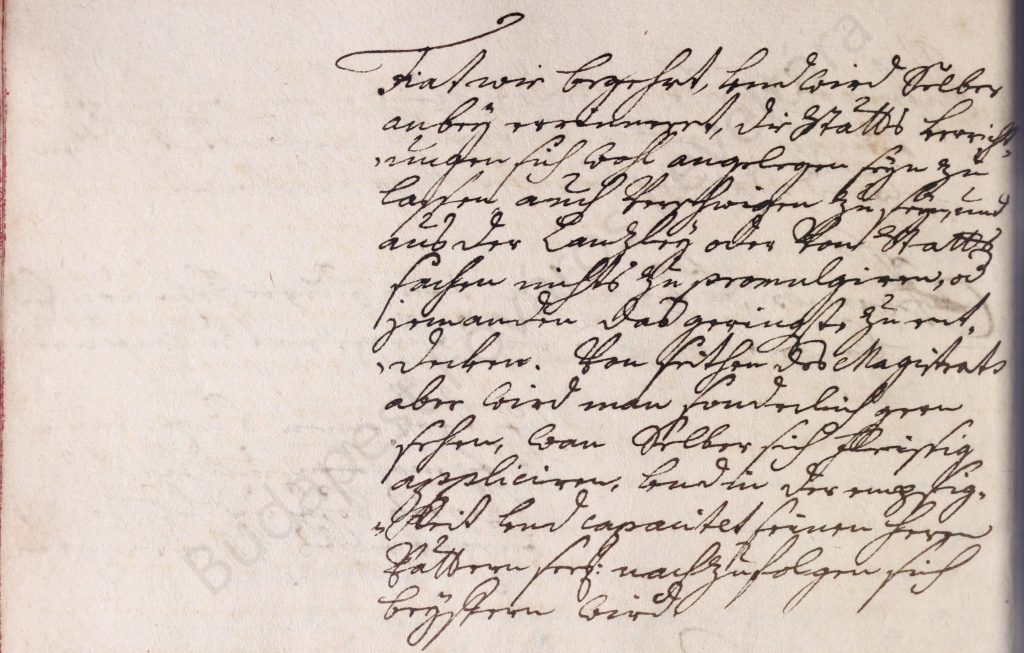 Fiat wie begehrt, vnd wird Selber
anbey erinneret, die Statts verricht-
ungen sich wohl angelegen seyn zu
lassen auch verschwigen zu seyn, und
aus der Canzley oder von Statts
sachen nichts zu promulgiren, od
jemanden das geringste zu ent-
decken. Von seithen des Magistrats
aber wird man sonderlich gern
sehen, wan Selber sich fleissig
appliciren, vnd in der embsig-
keit vnd capacitet seinen Herrn
Vattern seel: nachzufolgen sich
beyfern wird
Budapest